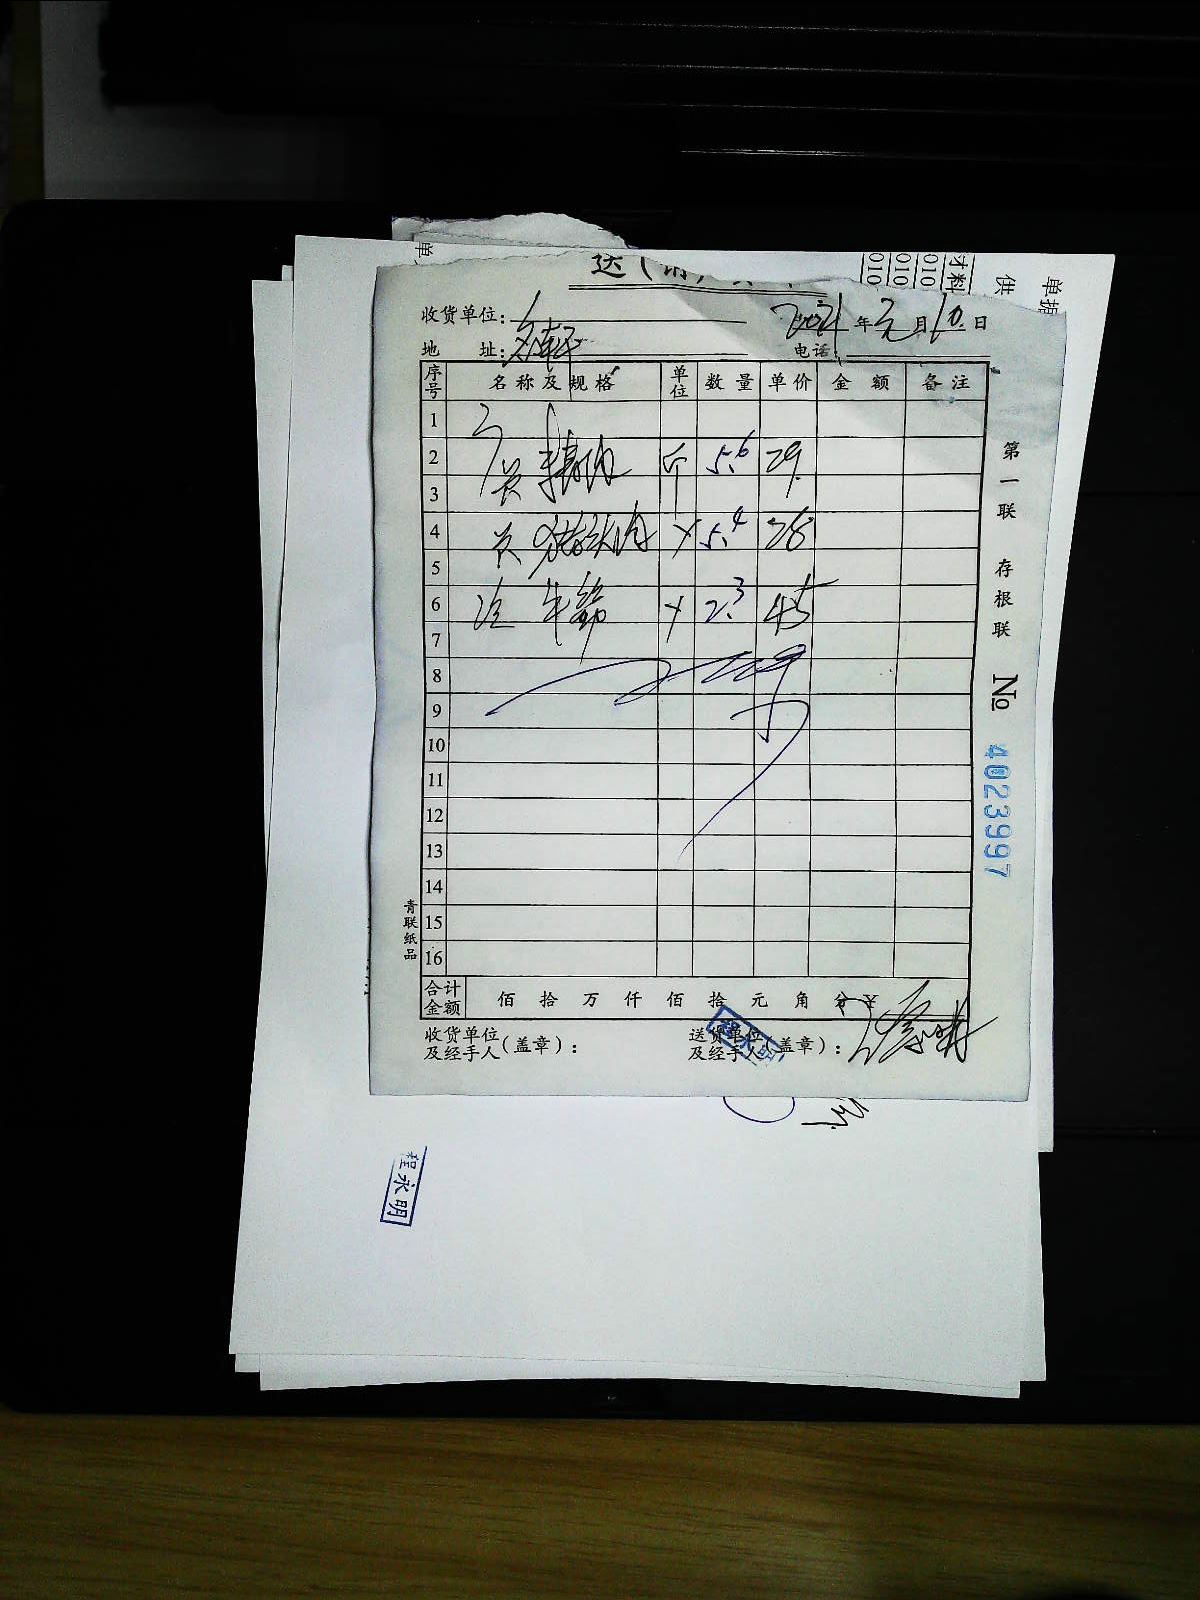 收货单位:
2021年元月10.日
地 址:
电话:
序号 名称及规格 单位 数量 单价 金额 备注
1
2 精肉 斤 5.6 29.
3
4 猪头肉 5.4 28
5
6 牛筋 2.3 45
7
8
9
10
11
12
13
14
15
16
合计金额 佰 拾 万 仟 佰 拾 元 角 分 ¥
收货单位及经手人(盖章):
送货单位及经手人(盖章):
第一联 存根联 No 4023997
青联纸品
程永明
程永明
单
供
材料
010
010
010